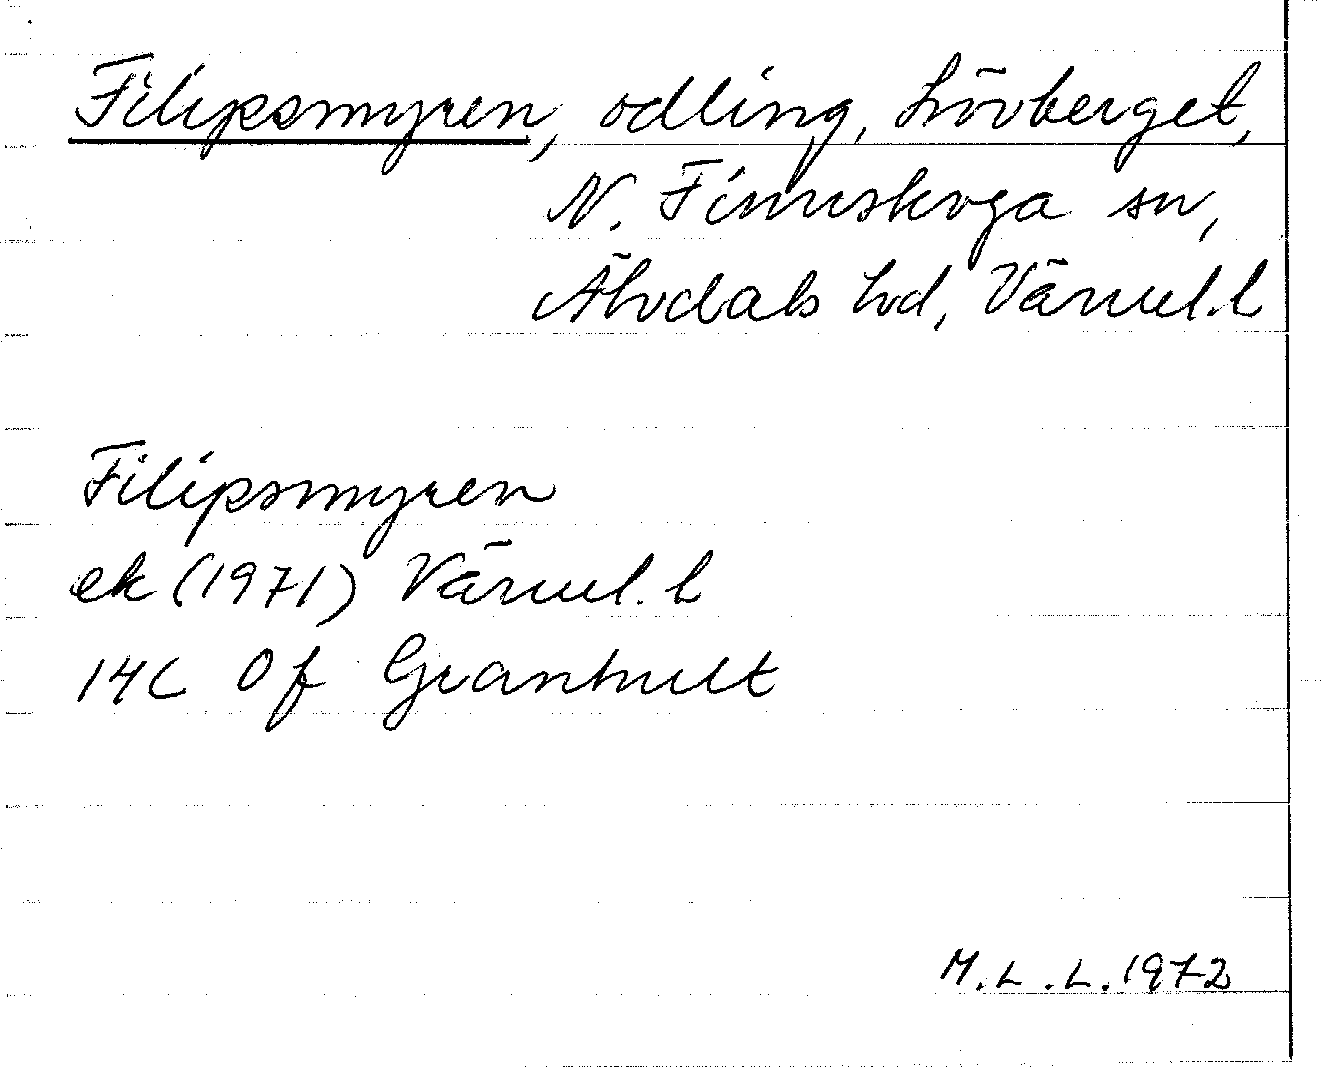 Filipsmyren, odling, Lövberget,
N. Finnskoga sn,
Älvdals hd, Värml. l
Filipsmyren
ek (1971) Värml. l
14C Of Granhult
M.L.L. 1972